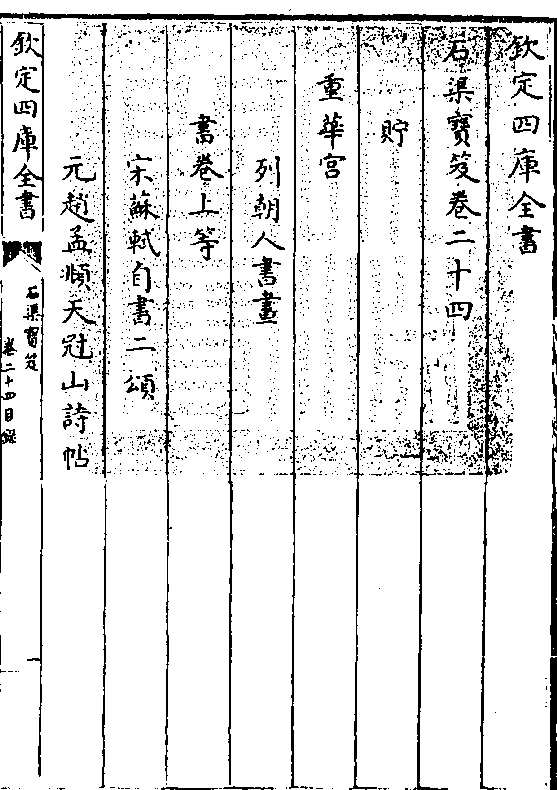 欽定四庫全書
石渠寶笈卷二十四
貯
重華宮
列朝人書畫
書卷上等
宋蘇軾自書二頌
元趙孟頫天冠山詩帖
欽定四庫全書
石渠寶笈
卷二十四目錄
一